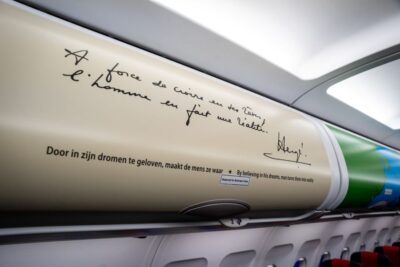 A force de croire en ses rêves,
l'homme en fait une réalité.
Hergé
Door in zijn dromen te geloven, maakt de mens ze waar ★ By believing in his dreams, man turns them into reality